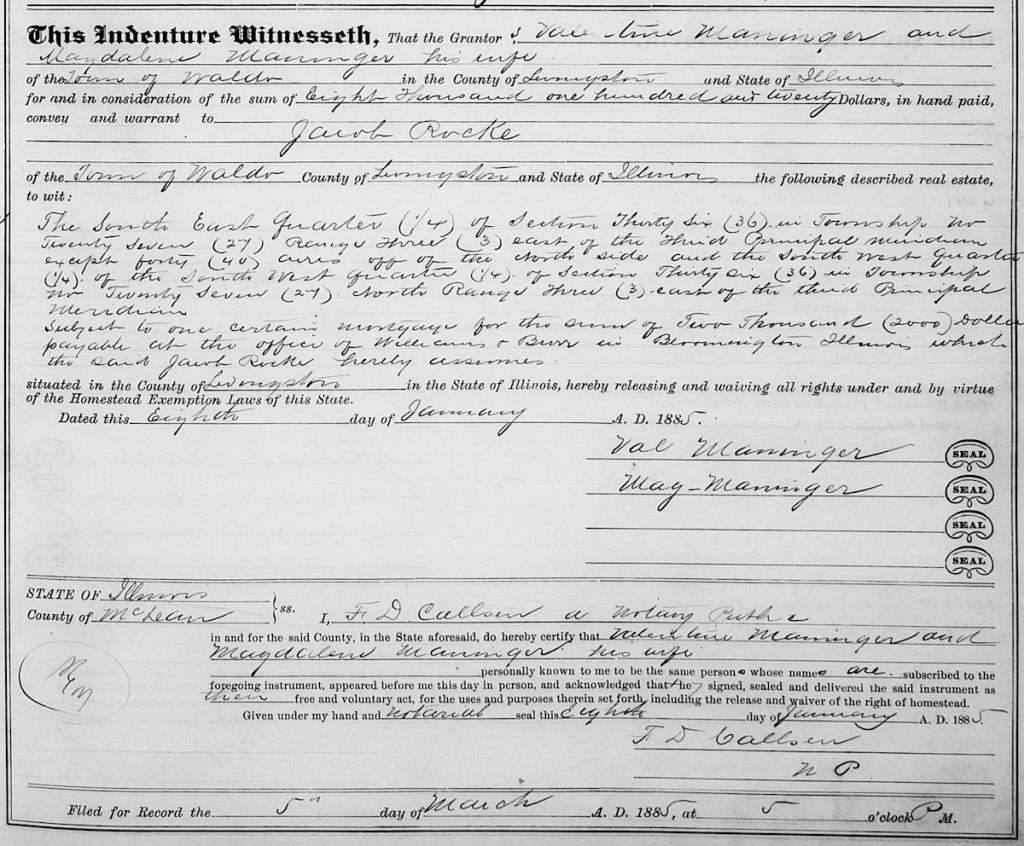 This Indenture Witnesseth, That the Grantor s, Valentine Maninger and
Magdalene Maninger his wife
of the Town of Waldo in the County of Livingston and State of Illinois
for and in consideration of the sum of Eight Thousand one hundred and twenty Dollars, in hand paid,
convey and warrant to
Jacob Rocke
of the Town of Waldo County of Livingston and State of Illinois the following described real estate,
to wit:
The South East Quarter (1/4) of Section Thirty Six (36) in Township No
Twenty Seven (27) Range Three (3) east of the Third Principal Meridian
except forty (40) acres off of the North side and the South West Quarter
(1/4) of the South West Quarter (1/4) of Section Thirty Six (36) in Township
No Twenty Seven (27) North Range Three (3) east of the third Principal
Meridian
Subject to one certain mortgage for the sum of Two Thousand (2000) Dolla
payable at the office of Williams & Burr in Bloomington Illinois which
the said Jacob Rocke hereby assumes
situated in the County of Livingston in the State of Illinois, hereby releasing and waiving all rights under and by virtue
of the Homestead Exemption Laws of this State.
Dated this Eighth day of January A. D. 1885.
Val Maninger SEAL
Mag Maninger SEAL
SEAL
SEAL
STATE OF Illinois
County of McLean } ss. I, F D Callsen a Notary Public
in and for the said County, in the State aforesaid, do hereby certify that Valentine Maninger and
Magdalene Maninger his wife
personally known to me to be the same persons whose names are subscribed to the
foregoing instrument, appeared before me this day in person, and acknowledged that they signed, sealed and delivered the said instrument as
their free and voluntary act, for the uses and purposes therein set forth, including the release and waiver of the right of homestead.
Given under my hand and Notarial seal this Eighth day of January A. D. 1885
F D Callsen
N P
Filed for Record the 5" day of March A. D. 1885, at 5 o'clock P M.